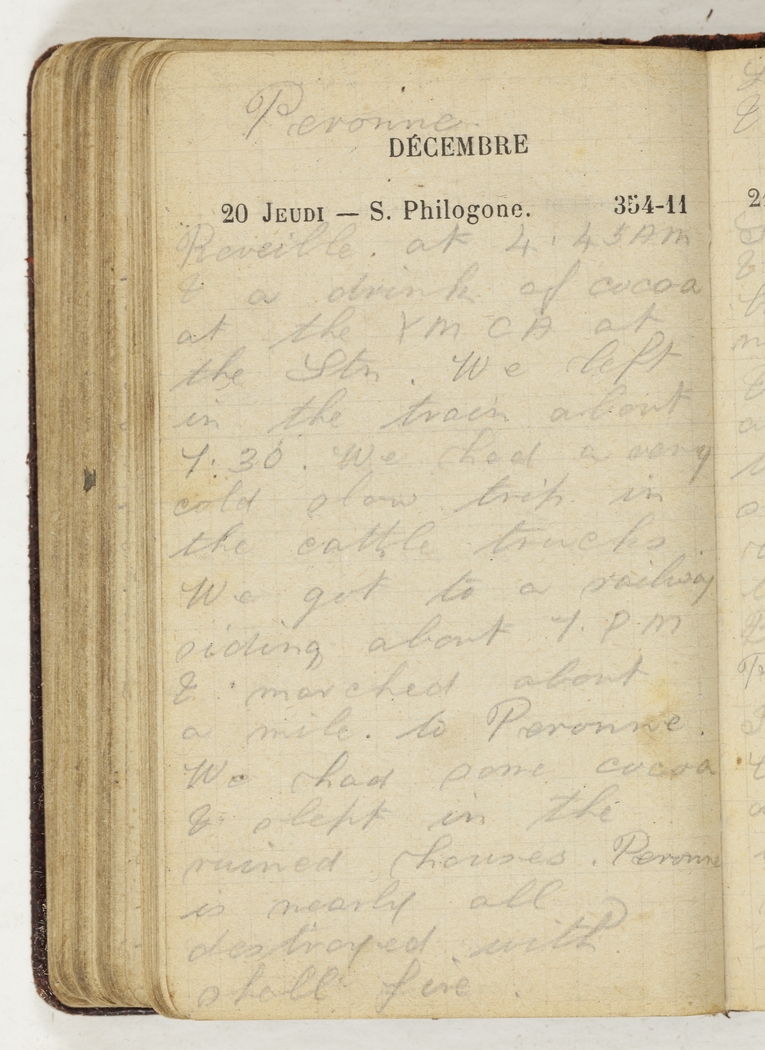 Peronne
DÉCEMBRE
20 JEUDI — S. Philogone. 354-11
Reveille. at 4.45AM
& a drink of cocoa
at the YMCA at
the Stn. We left
in the train about
7.30. We had a very
cold slow trip in
the cattle trucks.
We got to a railway
siding about 7.PM
& marched about
a mile. to Peronne.
We had some cocoa
& slept in the
ruined houses. Peronne
is nearly all
destroyed with
shell fire.